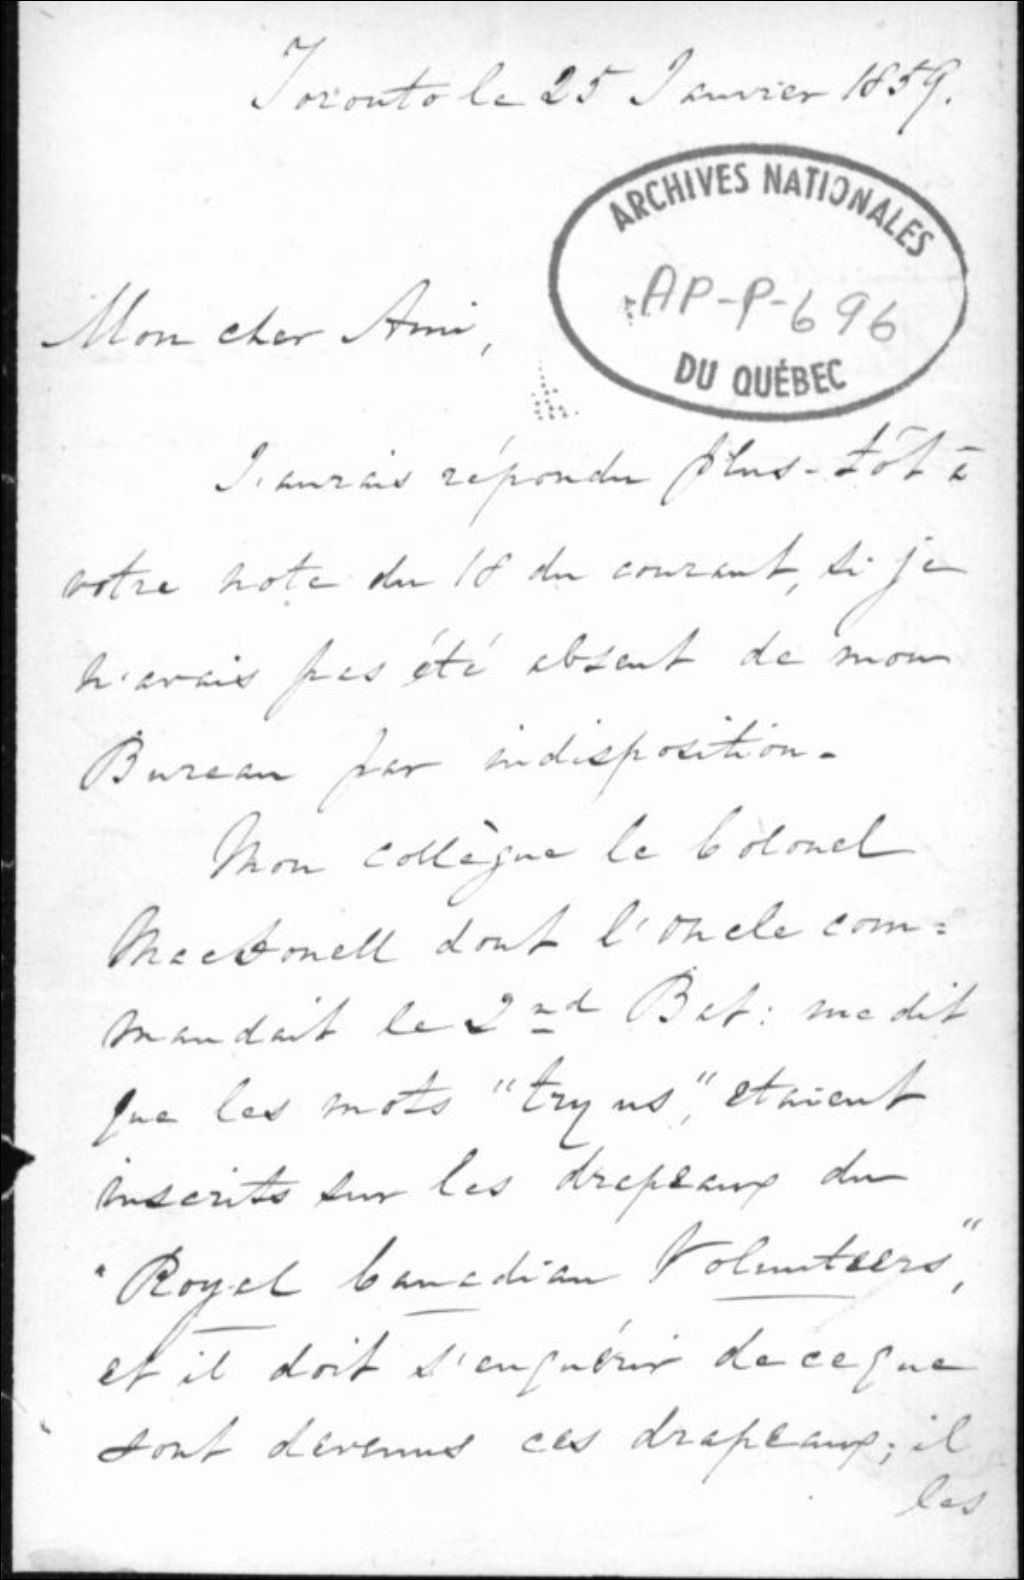 Toronto le 25 Janvier 1859.
ARCHIVES NATIONALES
AP-P-696
DU QUÉBEC
Mon cher Ami,
J'aurais répondu plus-tôt à
votre note du 18 du courant, si je
n'avais pas été absent de mon
Bureau par indisposition-
Mon collègue le Colonel
MacDonell dont l'oncle com=
mandait le 2nd Bat: me dit
que les mots "try us", etaient
inscrits sur les drapeaux du
"Royal Canadian Volunteers",
et il doit s'enquérir de ce que
sont devenus ces drapeaux; il
les